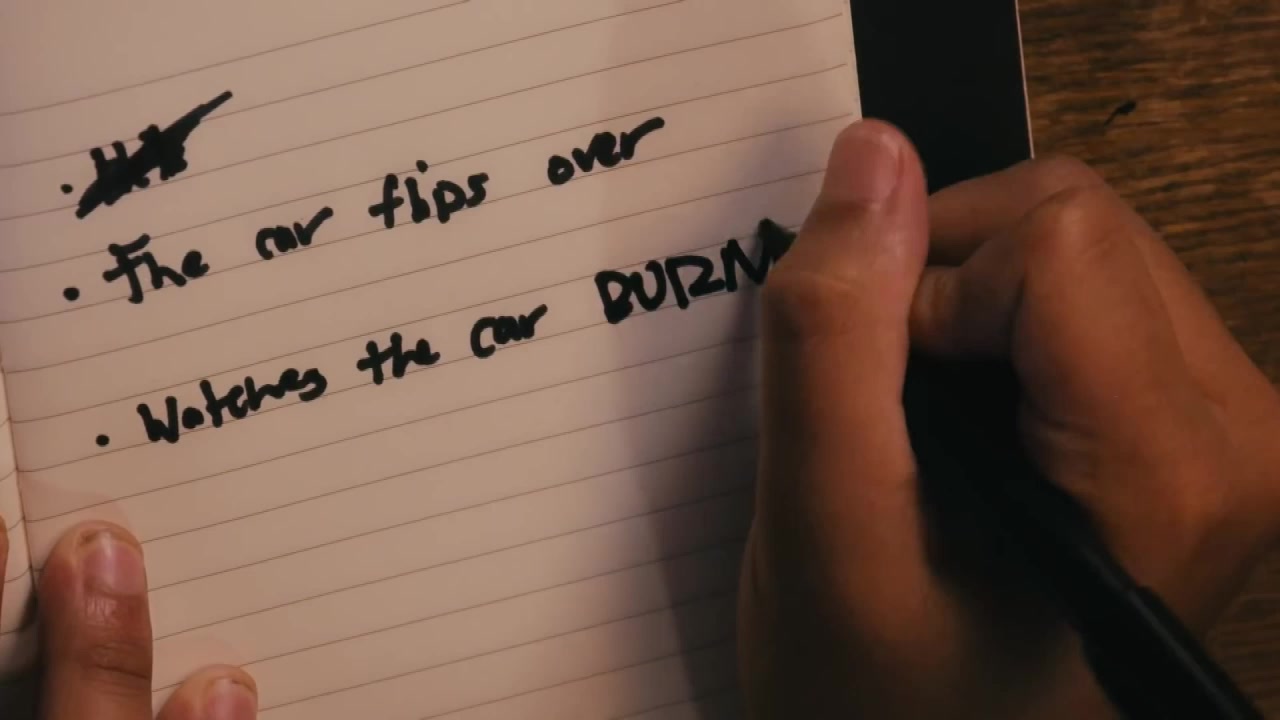 • The car flips over
• Watches the car BURN